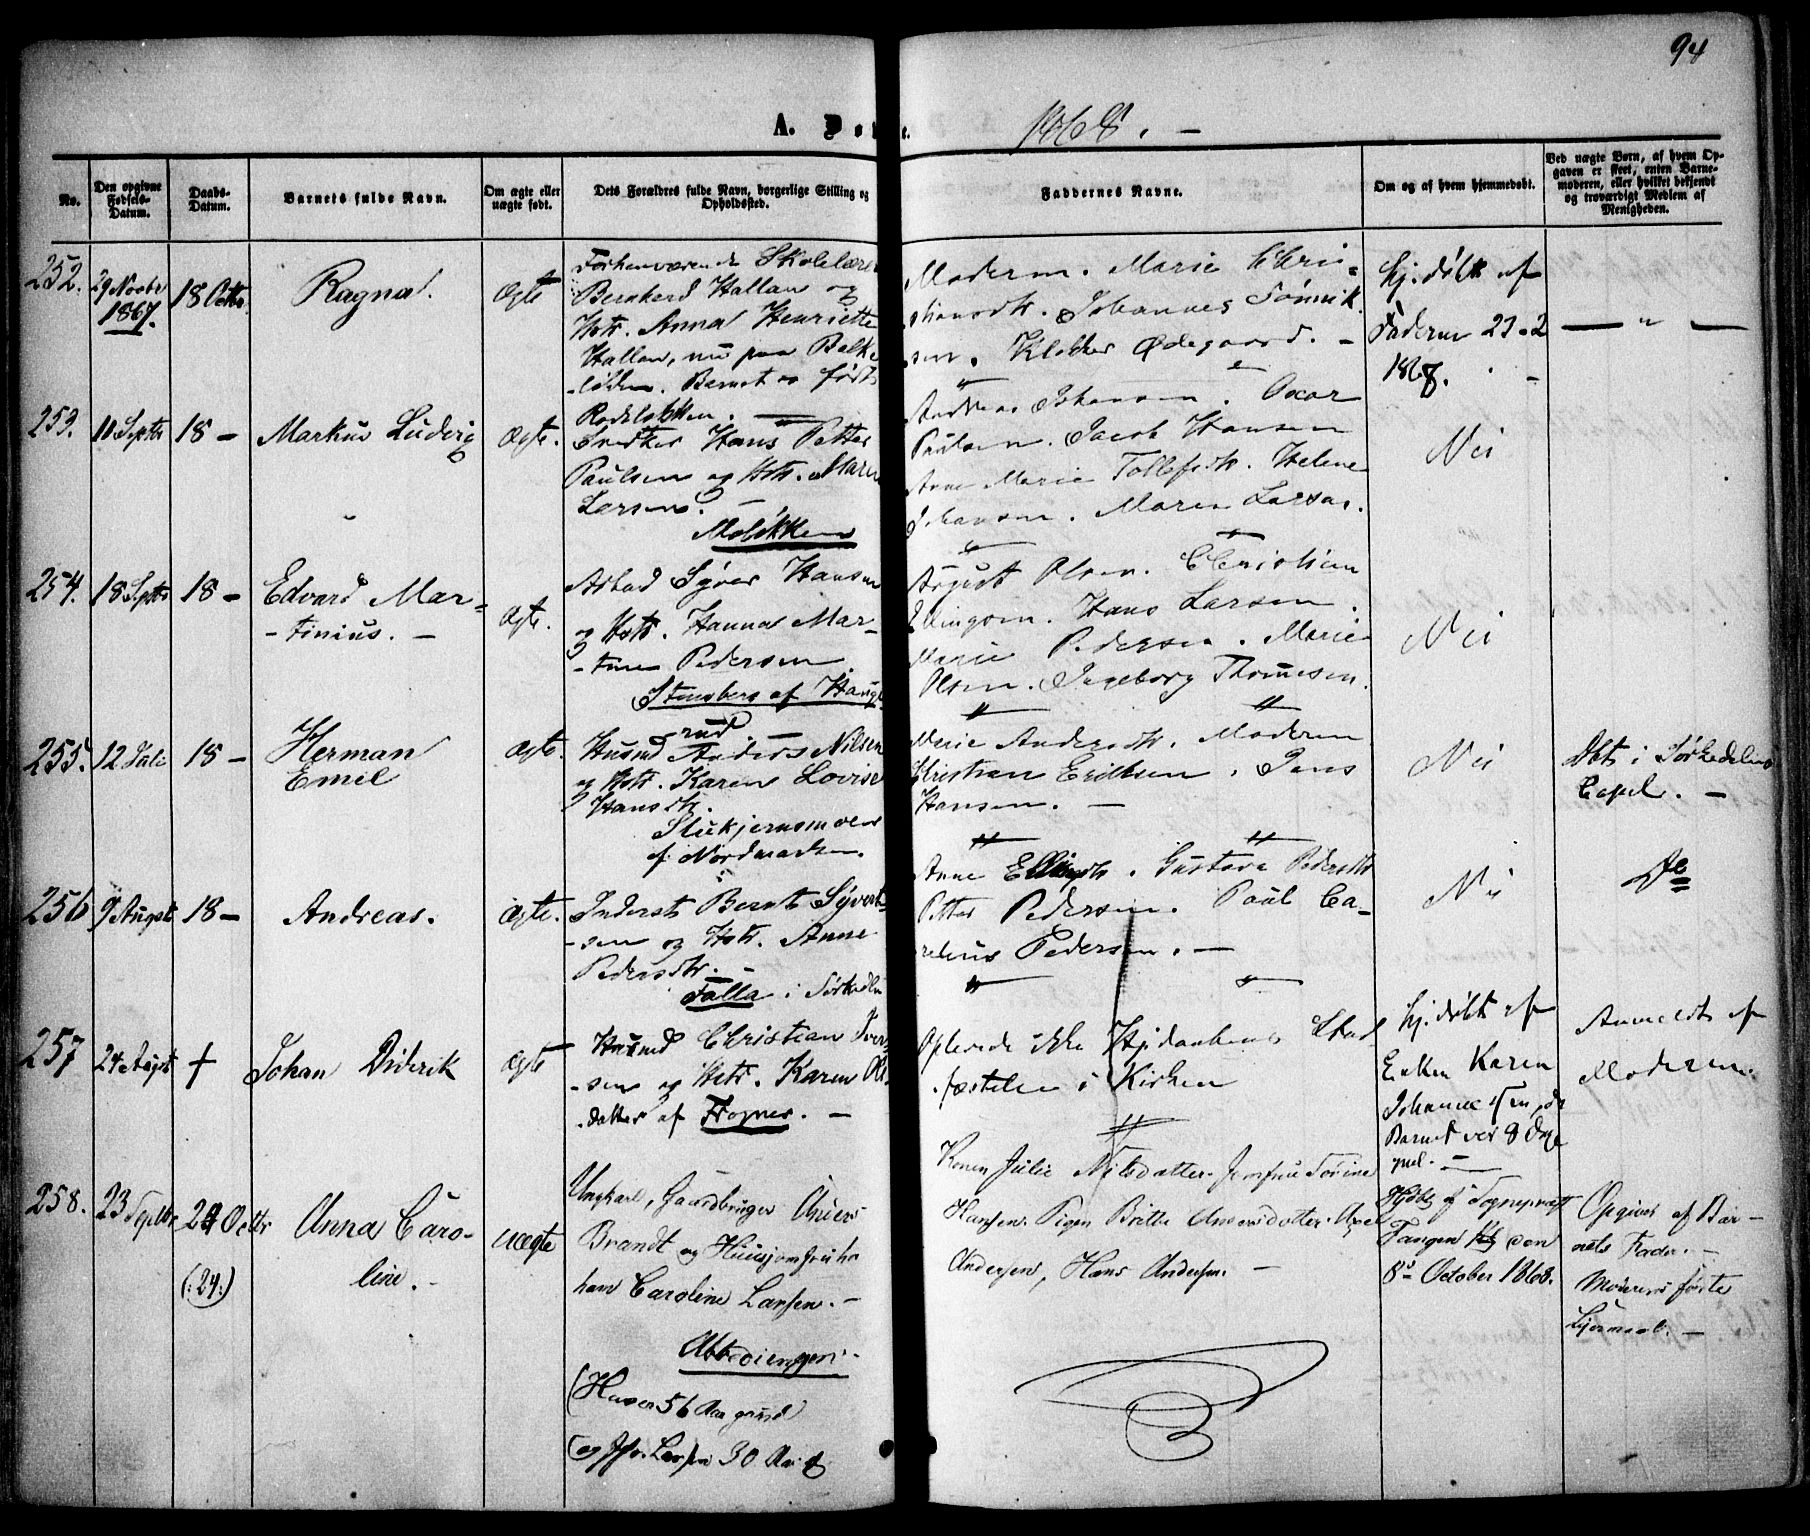 94
A. Dø e. 1868. -
No.
Den opgivne Fødsels-Datum.
Daabs-Datum.
Barnets fulde Navn.
Om ægte eller uægte født.
Dets Forældres fulde Navn, borgerlige Stilling og Opholdssted.
Faddernes Navne.
Om og af hvem hjemmedøbt.
Ved uægte Børn, af hvem Opgaven er skeet, enten Barnemoderen, eller hvilket bekjendt og troværdigt Medlem af Menigheden.
252.
29 Novbr
1867.
18 Octbr
Ragna.
Ægte
Forhenværende Skolelærer
Bernhard Hallan og
Hstr. Anna Henriette
Hallan, nu paa Bakke
-løkken. Barnet er født
Rodeløkken. -
Moderen. Marie Chri-
stiansdtr. Johannes
sen. Klokker Ødegaard. -
Hj. døbt af
Faderen 23-2
1868. -
- " -
253.
11 Septbr
18 -
Markus Ludvig
Ægte.
Snedker Hans Petter
Paulsen og Hstr. Maren
Larsen.
Moløkken
Andreas Johansen. Oscar
Paulsen. Jacob Hansen
Anne Marie Tollefsdtr. Helene
Johansen. Maren Larsen.
Nei
254.
18 Septbr
18 -
Edvard Mar-
-tinius. -
Ægte.
Arbad Syver Hansen
og Hstr. Hanna Mar-
-tine Pedersen.
Stensberg af Haugs
-rud
August Olsen. Christian
Hans Larsen.
Marie Pedersen. Marie
Olsen. Ingeborg Thomesen.
Nei
255.
12 Juli
18 -
Herman
Emil
Ægte.
Husmd Anders Nilsen
og Hstr. Karen Lovise
Hansdtr.
af Nordmarken.
Marie Andersdtr. Moderen
Christian Eriksen. Jens
Hansen. -
Nei
Dbt i Sørkedalens
Capel. -
256
9 August
18 -
Andreas.
Ægte.
Inderst Bernt Syvert
-sen og Hstr. Anne
Pedersdtr. -
Falla i Sørkedln
Anne Gustava Pedersdtr
Petter Pedersen. Paul Ca-
relius Pedersen. -
Nei
Do
257
24 August
†
Johan Didrik
Ægte
Husmd Christian Iver
-sen og Hstr. Karen Ols
-datter af Frogner. -
Oplevede ikke Hjdaabens Stad
-fæstelse i Kirken
Hj. døbt af
Enken Karen
Johannesen, da
Barnet var 8 Dage
gml. -
Anmeldt af
Moderen.
258.
23 Septbr
24 Octbr
(:24:)
Anna Caro-
line. -
uægte
Ungkarl, Gaardbruger Anders
Brandt og Huusjomfru hos
ham Caroline Larsen. -
Abbediengen. -
(Han er 56 Aar gaml
og Jfr. Larsen 30 Aar
Konen Julie Nilsdatter. Jomfru Sørine
Hansen. Pigen Britte Andersdatter. Axel
Andersen, Hans Andersen. -
Hjdbt af Sognepræst
Tangen den
8de October 1868.
Opgivet af Bar-
nets Fader. -
Moderens første
Leiermaal. -